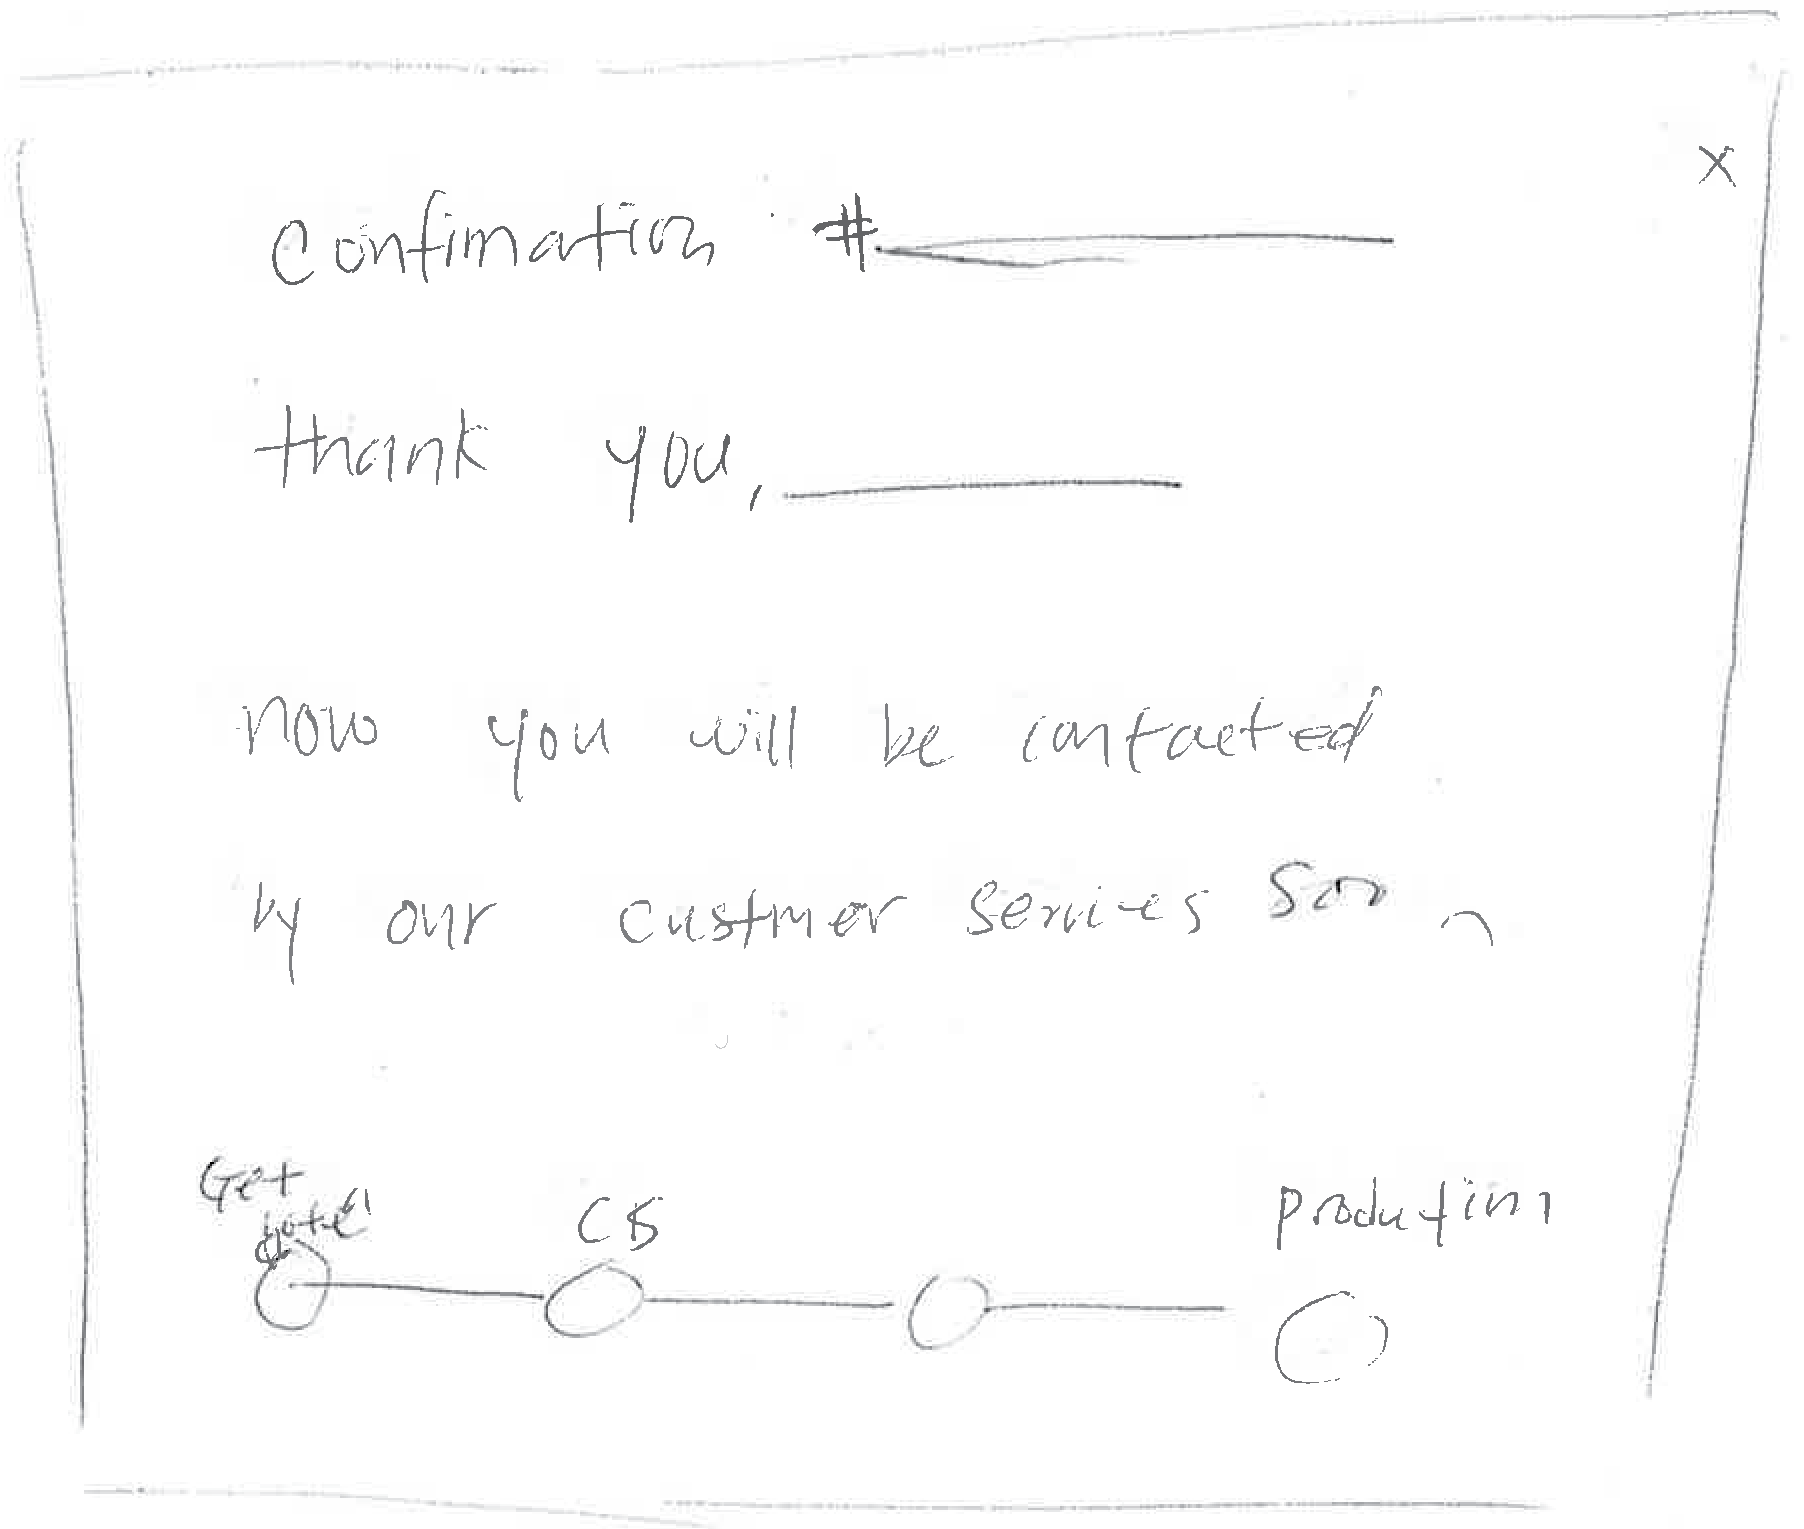 x
Confimation #
thank you,
now you will be contacted
by our custmer services
Get
CS
production